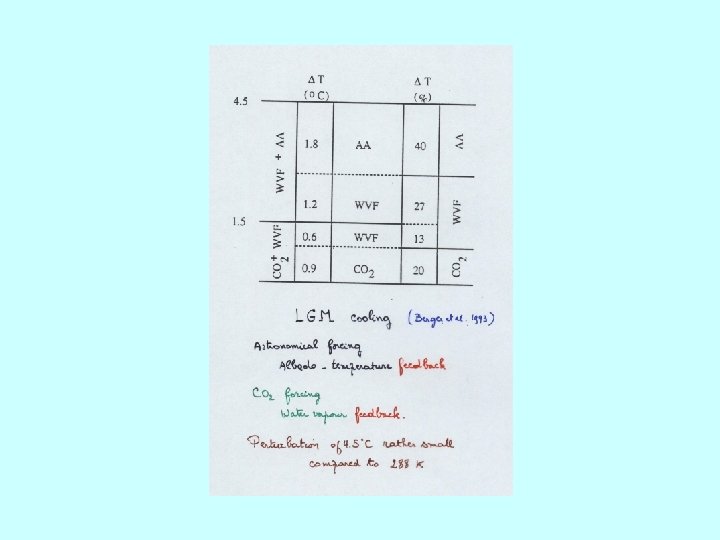 ΔT ΔT
(°C) (%)
4.5
WVF + AA 1.8 AA 40 AA
1.2 WVF 27 WVF
1.5
CO2 + WVF 0.6 WVF 13
0.9 CO2 20 CO2
LGM cooling (Berger et al. 1993)
Astronomical forcing
Albedo - temperature feedback
CO2 forcing
Water vapour feedback.
Perturbation of 4.5°C rather small
compared to 288 K